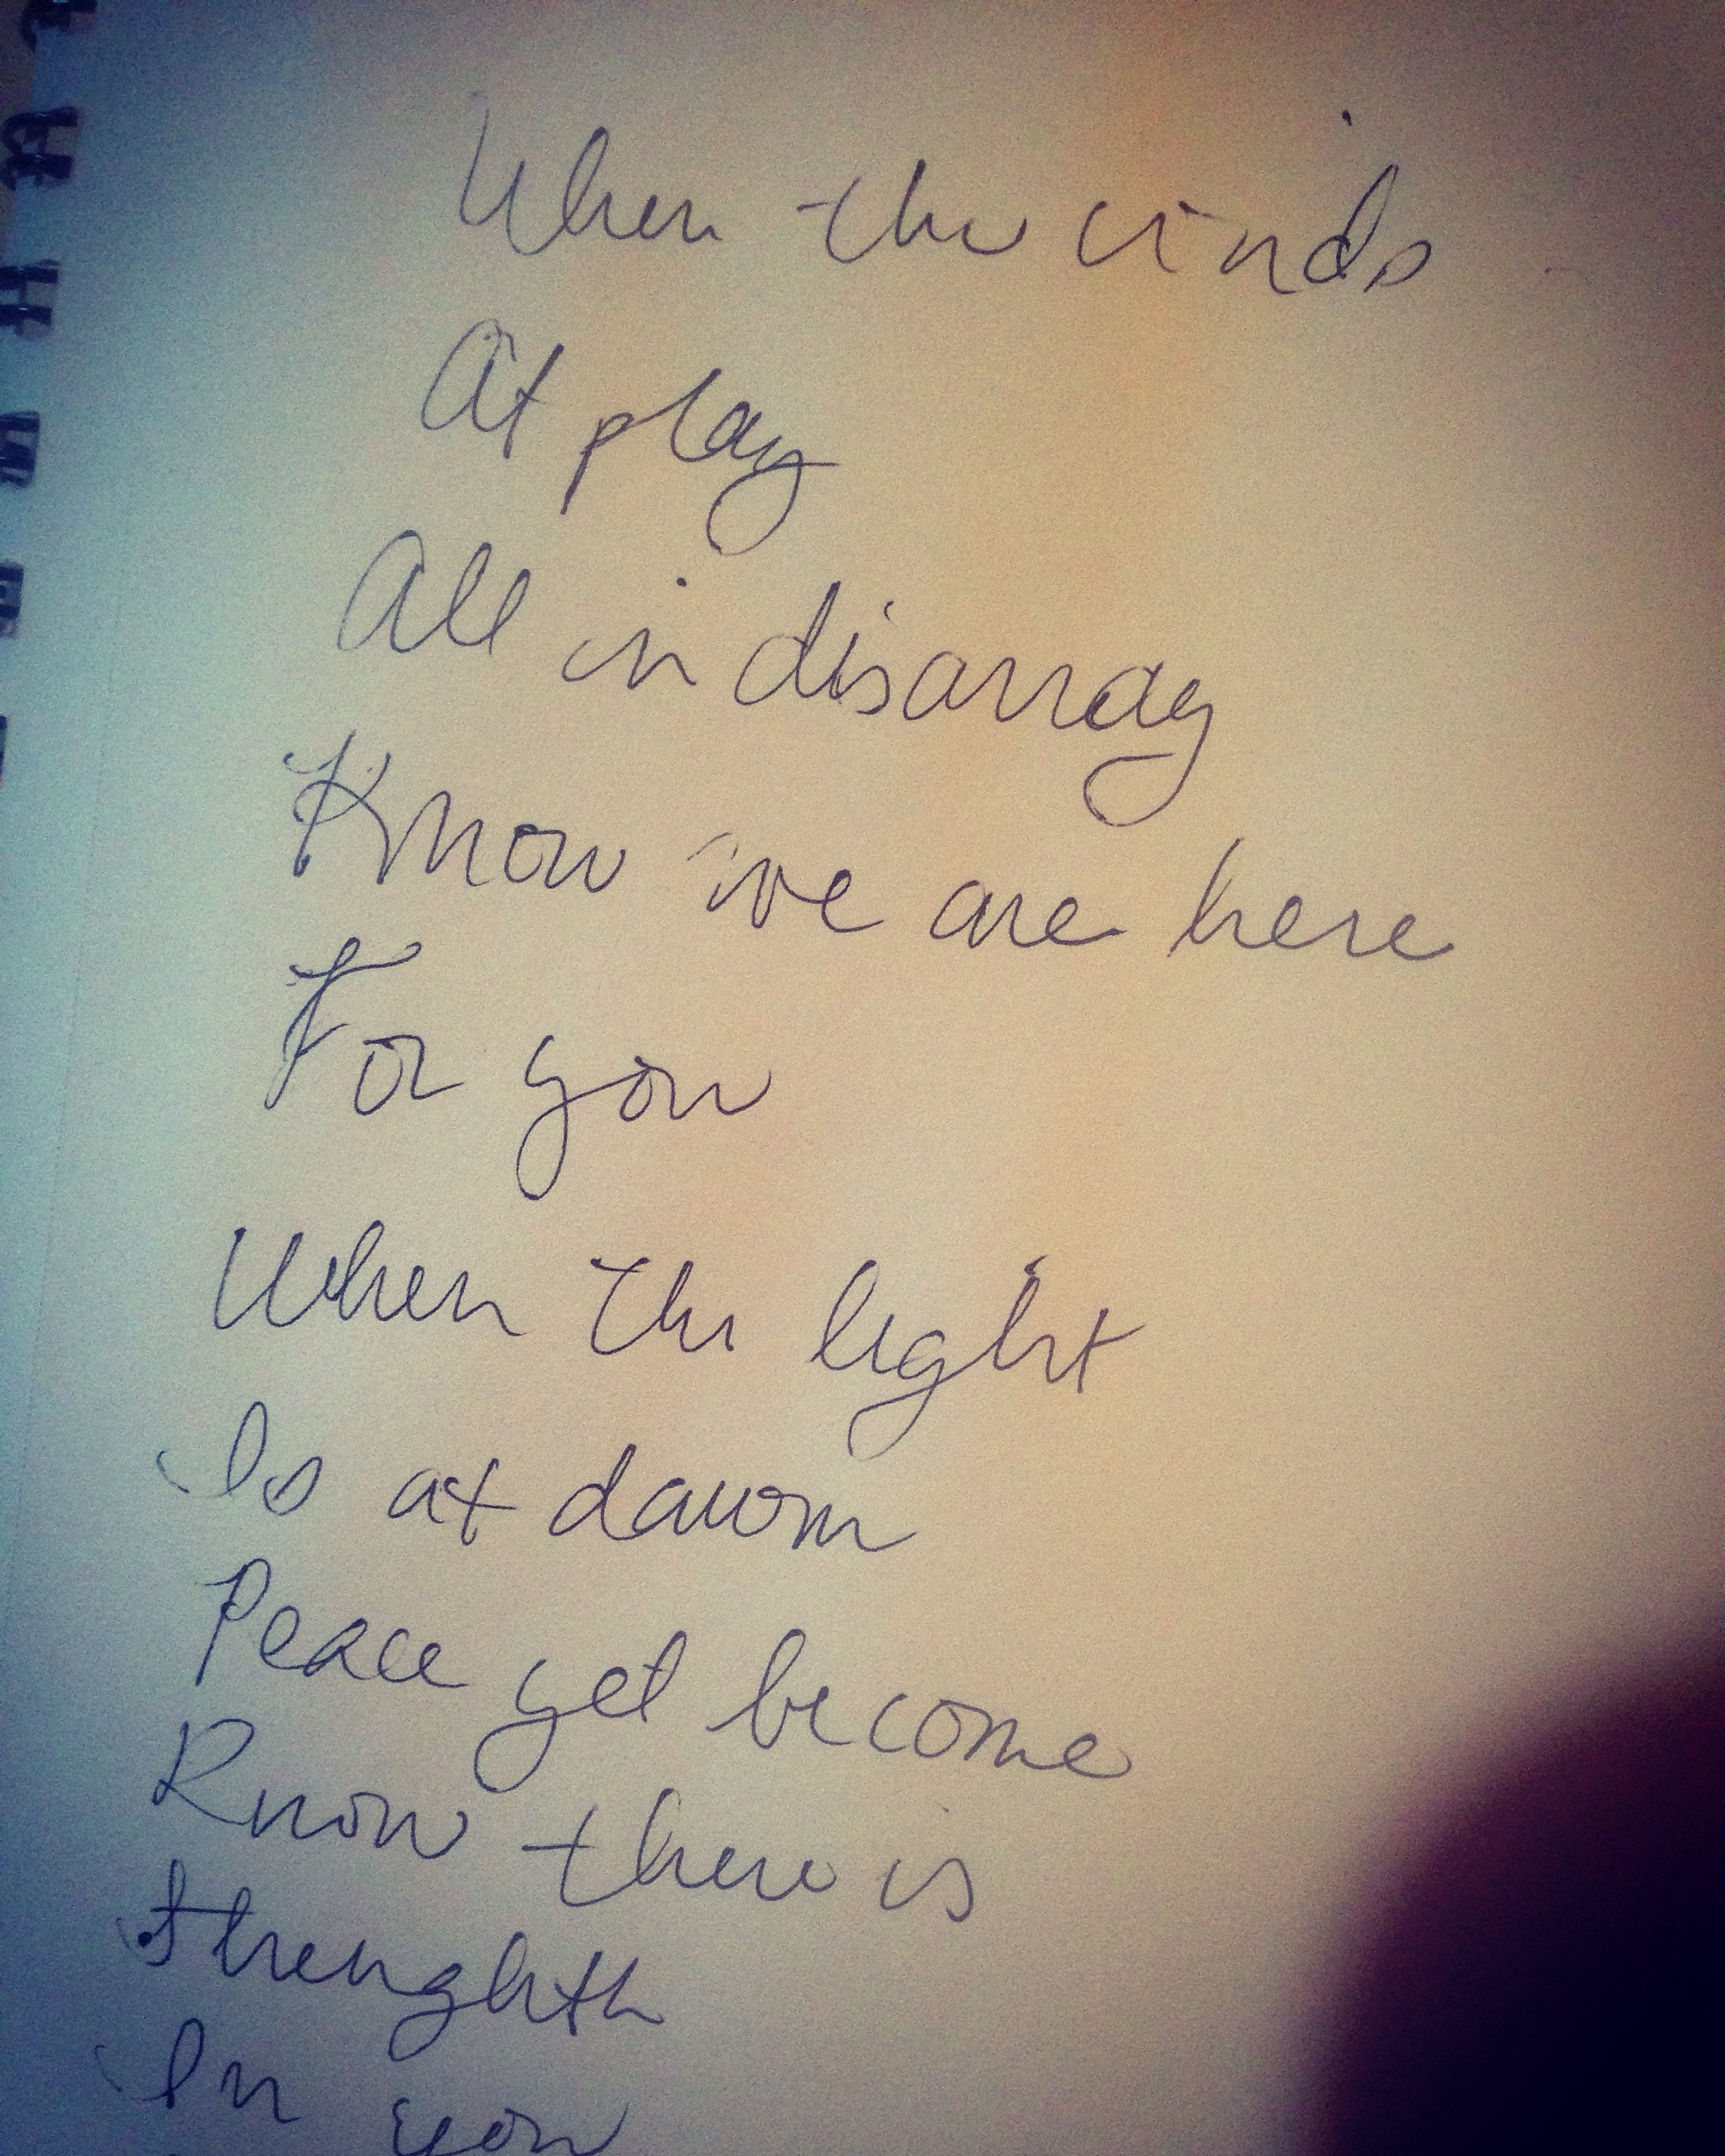 When the winds
At play
All in disarray
Know we are here
For you
When the light
Is at dawn
Peace yet become
Know there is
Strenghth
In you